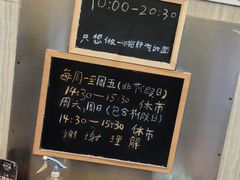 10:00-20:30
只想做一碗好吃的面
每周一至周五(非节假日)
14:30—15:30 休市
周六.周日(包含节假日)
14:30—15:30 休市
谢谢理解